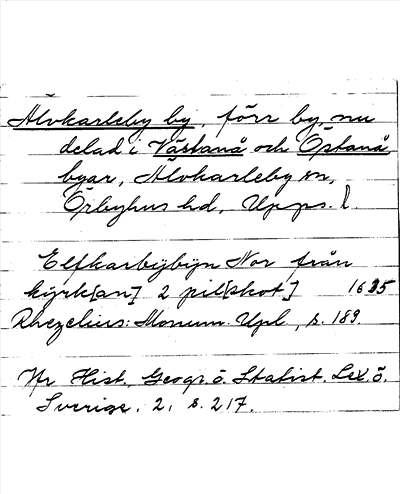 Älvkarleby by, förr by, nu
delad i Västanå och Östanå
byar, Älvkarleby sn,
Örbyhus hd, Upps. l.
Elfkarbÿbÿn Nor från
kÿrk[an] 2 pil[skot] 1635
Rhezelius: Monum. Upl., s. 189.
Hist. Geogr. o. Statist. Lex. ö.
Sverige, 2, s. 217.